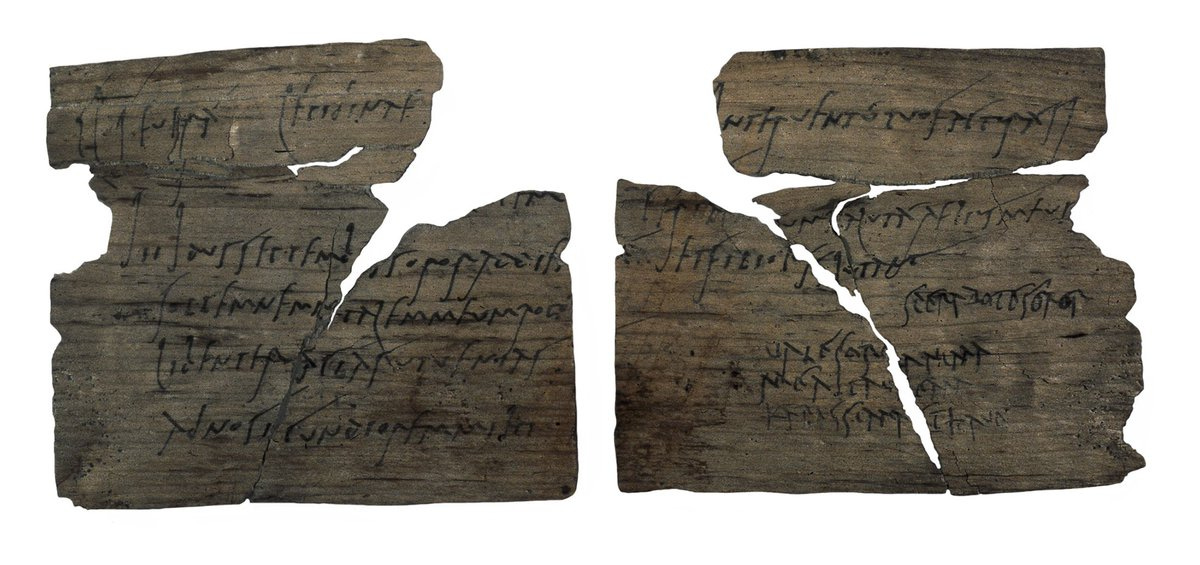 Cl Seuera Lepidinae
iii Idus Septembr soror ad diem
sollemnem natalem meum rogo
libenter facias ut uenias
ad nos iucundiorem mihi
interuentu tuo factura si
Cerial uum saluta Aelius meus
et filiolus salutant
sperabo te soror
uale soror anima
mea ita ualeam
karissima et haue